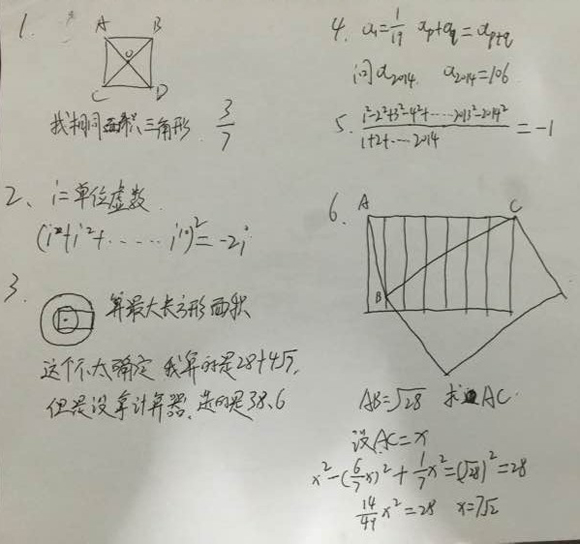 1.
A B
O
C D
找相同面积三角形 3/7
2、i=单位虚数
(i²+i²+......i¹⁰)²=-2i
3.
算最大长方形面积
这个不太确定 我算的是28+4√7,
但是没拿计算器,选的是38.6
4. a₁=1/19 ap+aq=ap+q
问a2014. a2014=106
5. (1²-2²+3²-4²+......2013²-2014²)/(1+2+....2014) =-1
6.
A C
B
AB=√28 求AC.
设AC=x
x²-(6/7x)²+1/7x²=(√28)²=28
14/49x²=28 x=7√2